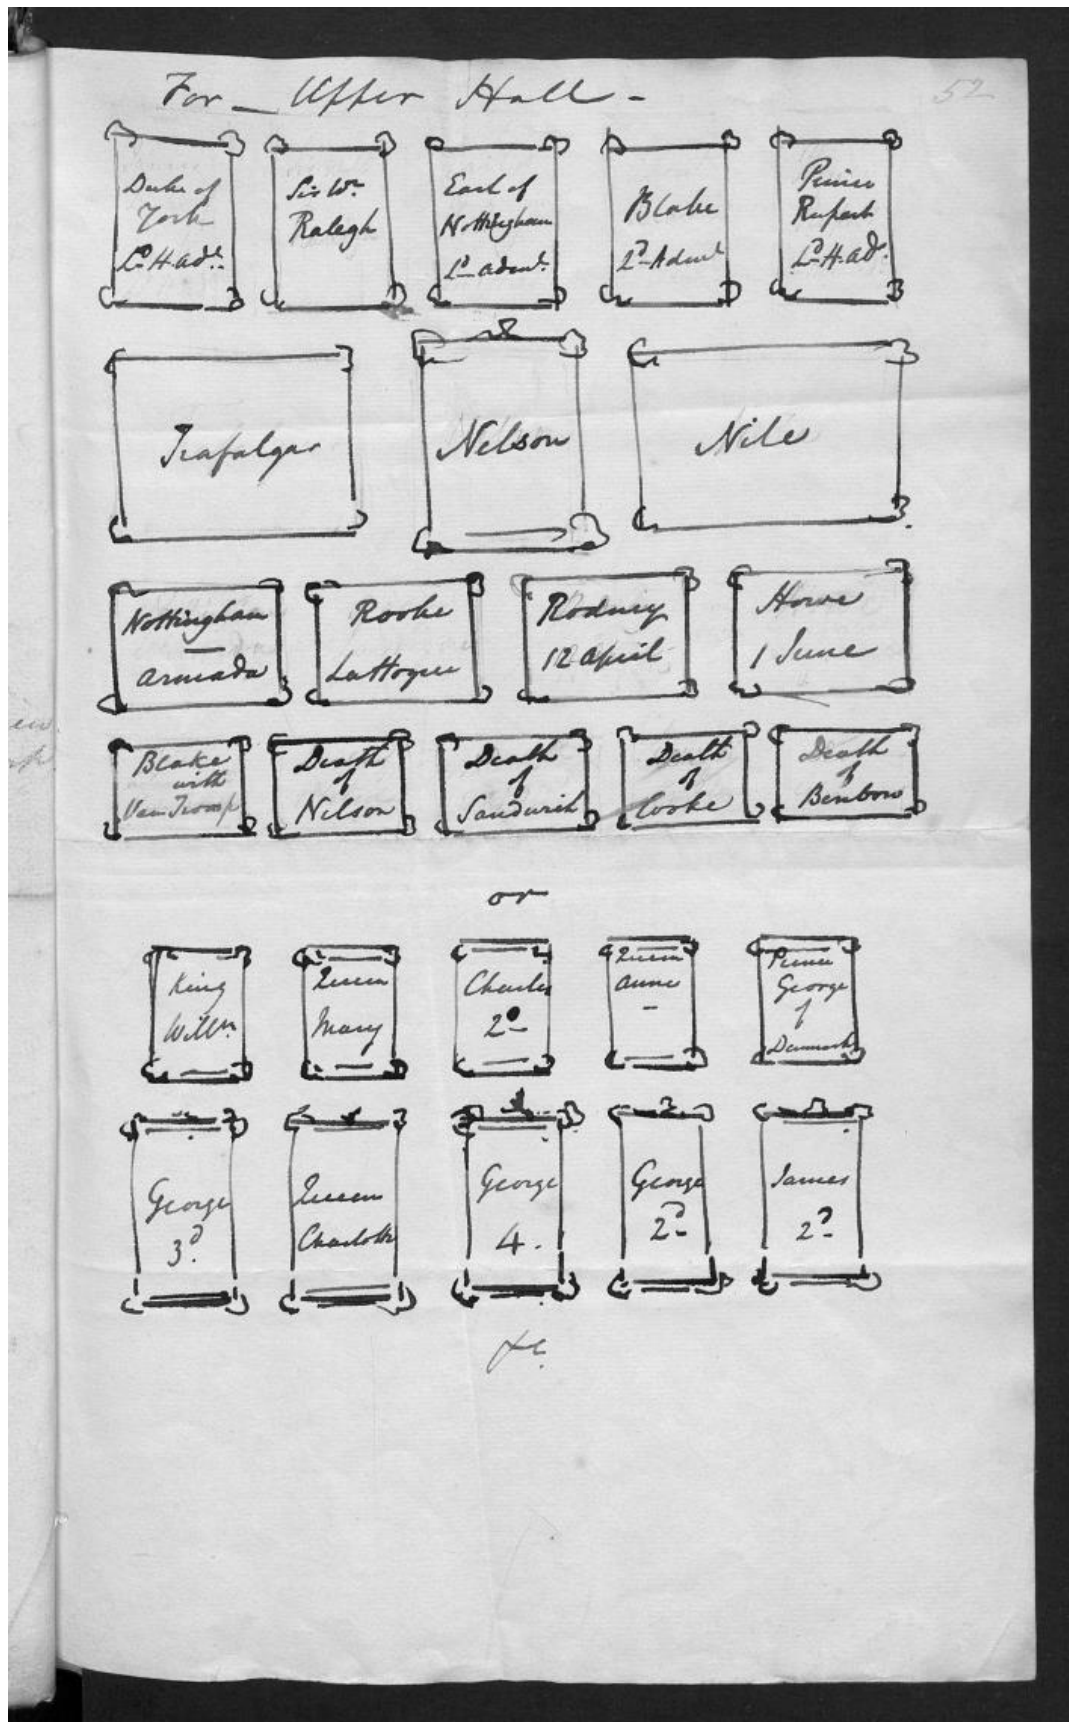 For — Upper Hall -
52
Duke of
York
Ld. H. Adl.
Sir Wr.
Ralegh
Earl of
Nottingham
Ld. Adml.
Blake
2d. Adml
Prince
Rupert
Ld. H. Ad.
Trafalgar
Nelson
Nile
Nottingham
—
Armada
Rooke
La Hogue
Rodney
12 April
Howe
1 June
Blake
with
Van Tromp
Death
of
Nelson
Death
of
Sandwich
Death
of
Cooke
Death
of
Benbow
or
King
Willm.
Queen
Mary
Charles
2d
Queen
Anne
-
Prince
George
of
Denmark
George
3d.
Queen
Charlotte
George
4.
George
2d
James
2d
&c.